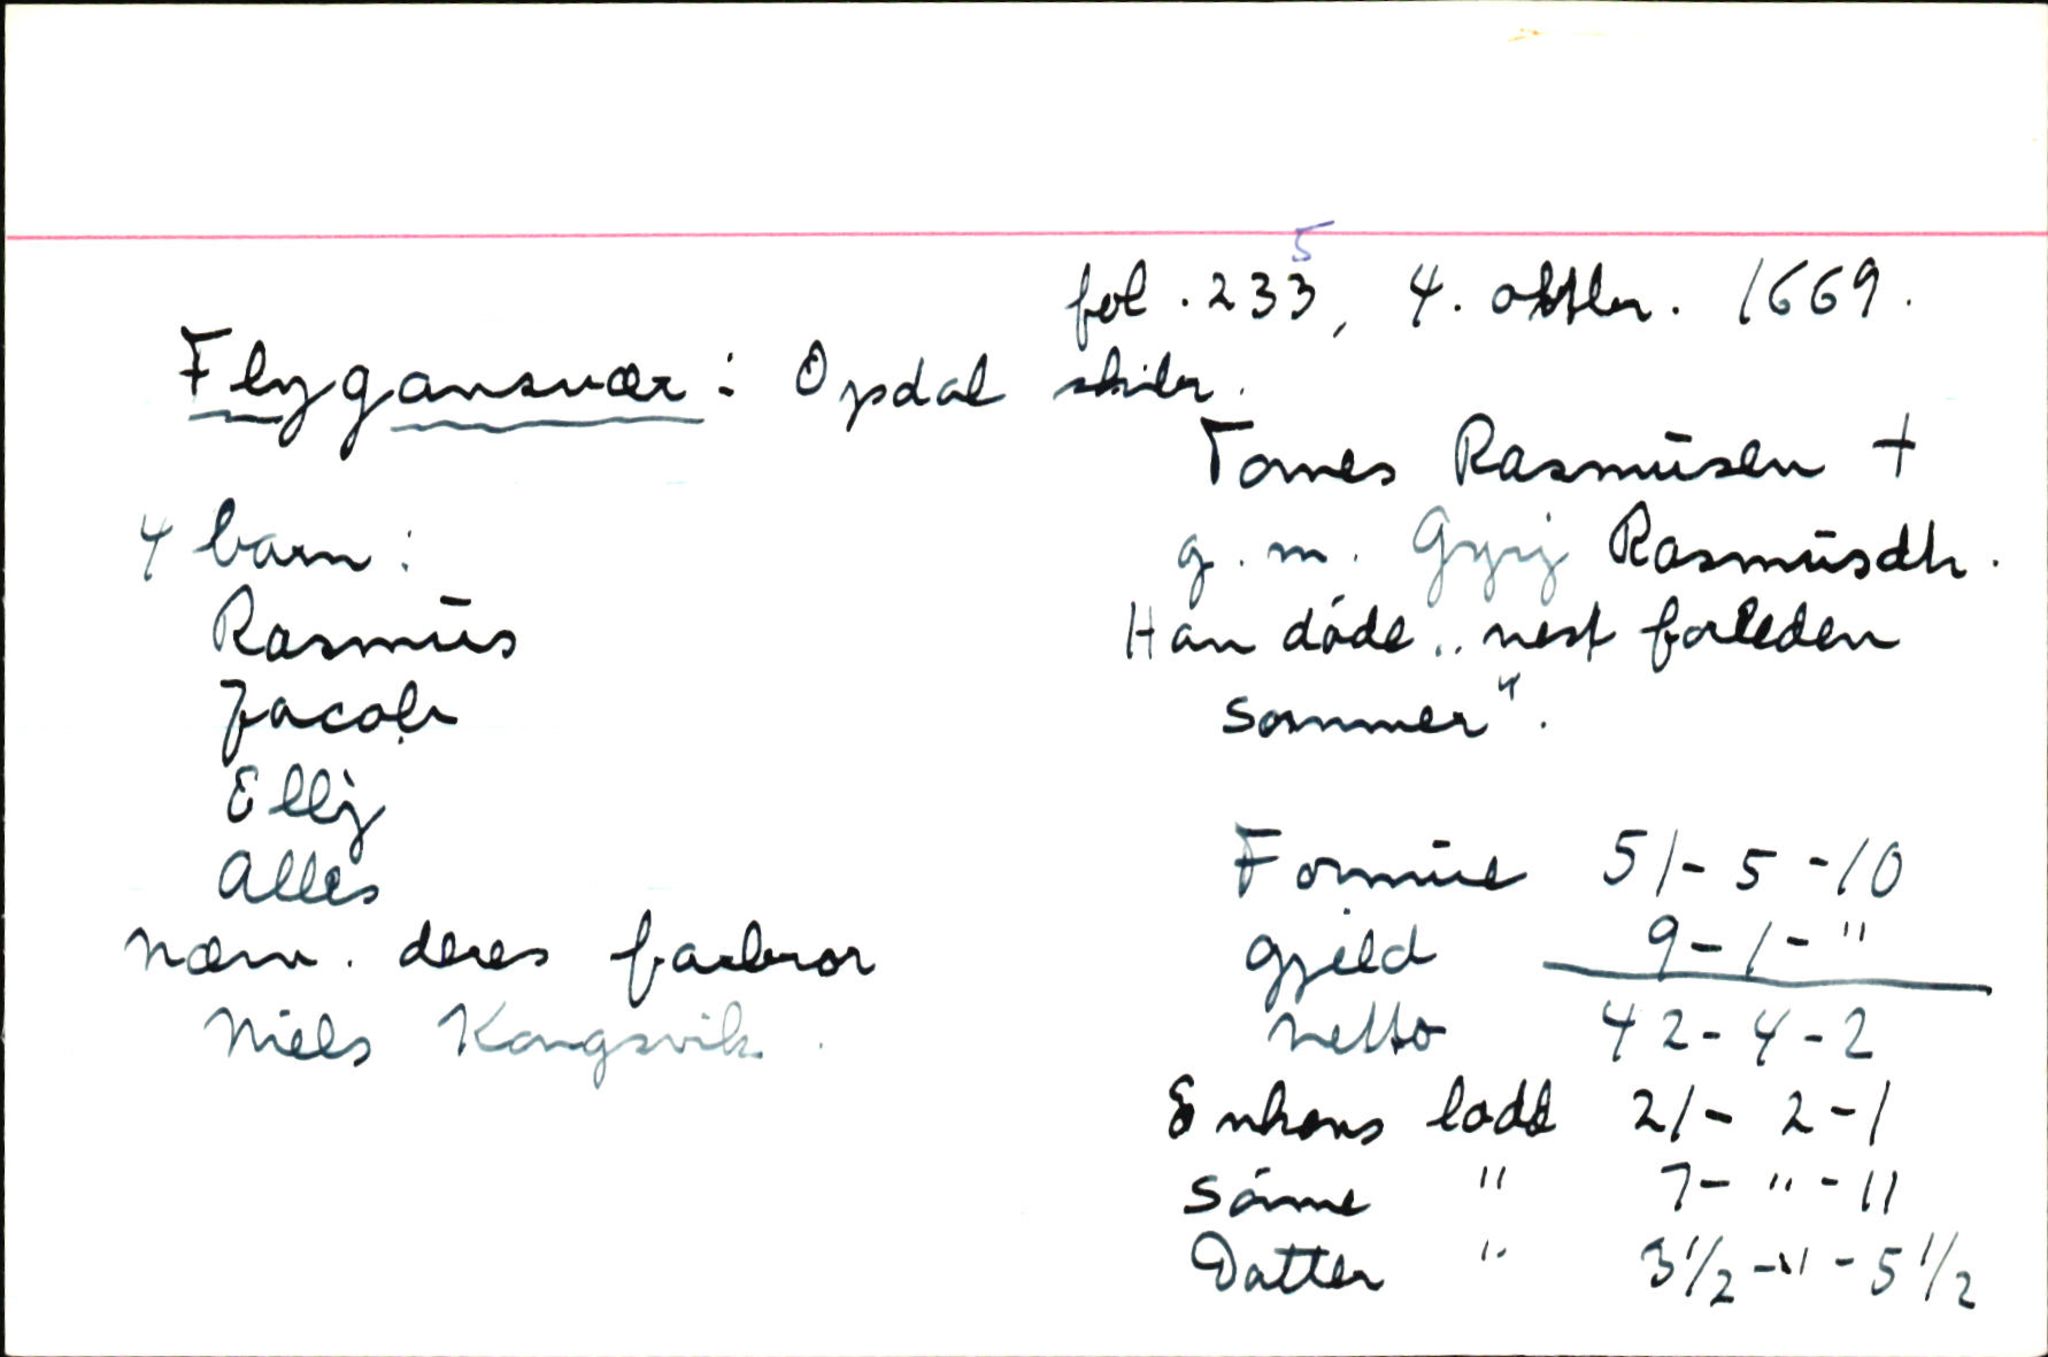 fol. 233, 4. oktbr. 1669.
5
Flygansvær: Opdal skibr.
Tomes Rasmūsen †
g. m. Gyrij Rasmūsdtr.
Han døde „nest forleden
sommer".
4 barn:
Rasmūs
Jacob
Ellij
Alles
Nærv. deres farbror
Niels Kongsvik.
Formūe 51-5-10
Gjeld 9-1-"
Netto 42-4-2
Enkens lodd 21-2-1
Sønne " 7-"-11
Datter " 3½-"-5½